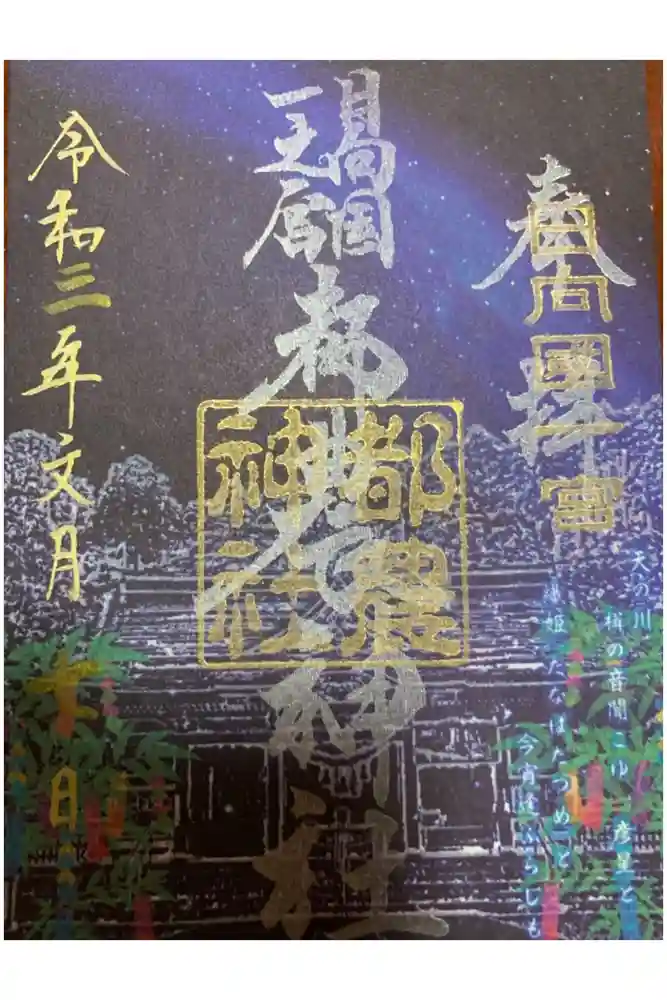 奉拝
日向國一宮
天の川
楫の音聞こゆ 彦星と
織姫(たなばたつめ)と
今宵逢ふらしも
日向国
一之宮
都農神社
都農
神社
令和三年文月
十日